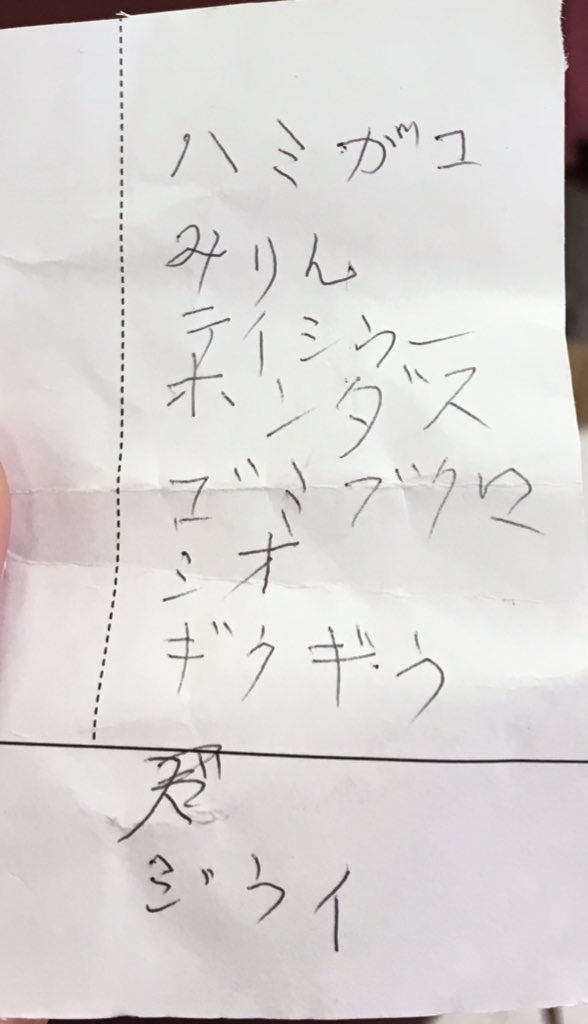 ハミガコ
みりん
テイシウー
ホンダス
ゴミブクロ
シオ
ギウギウ
ジウイ